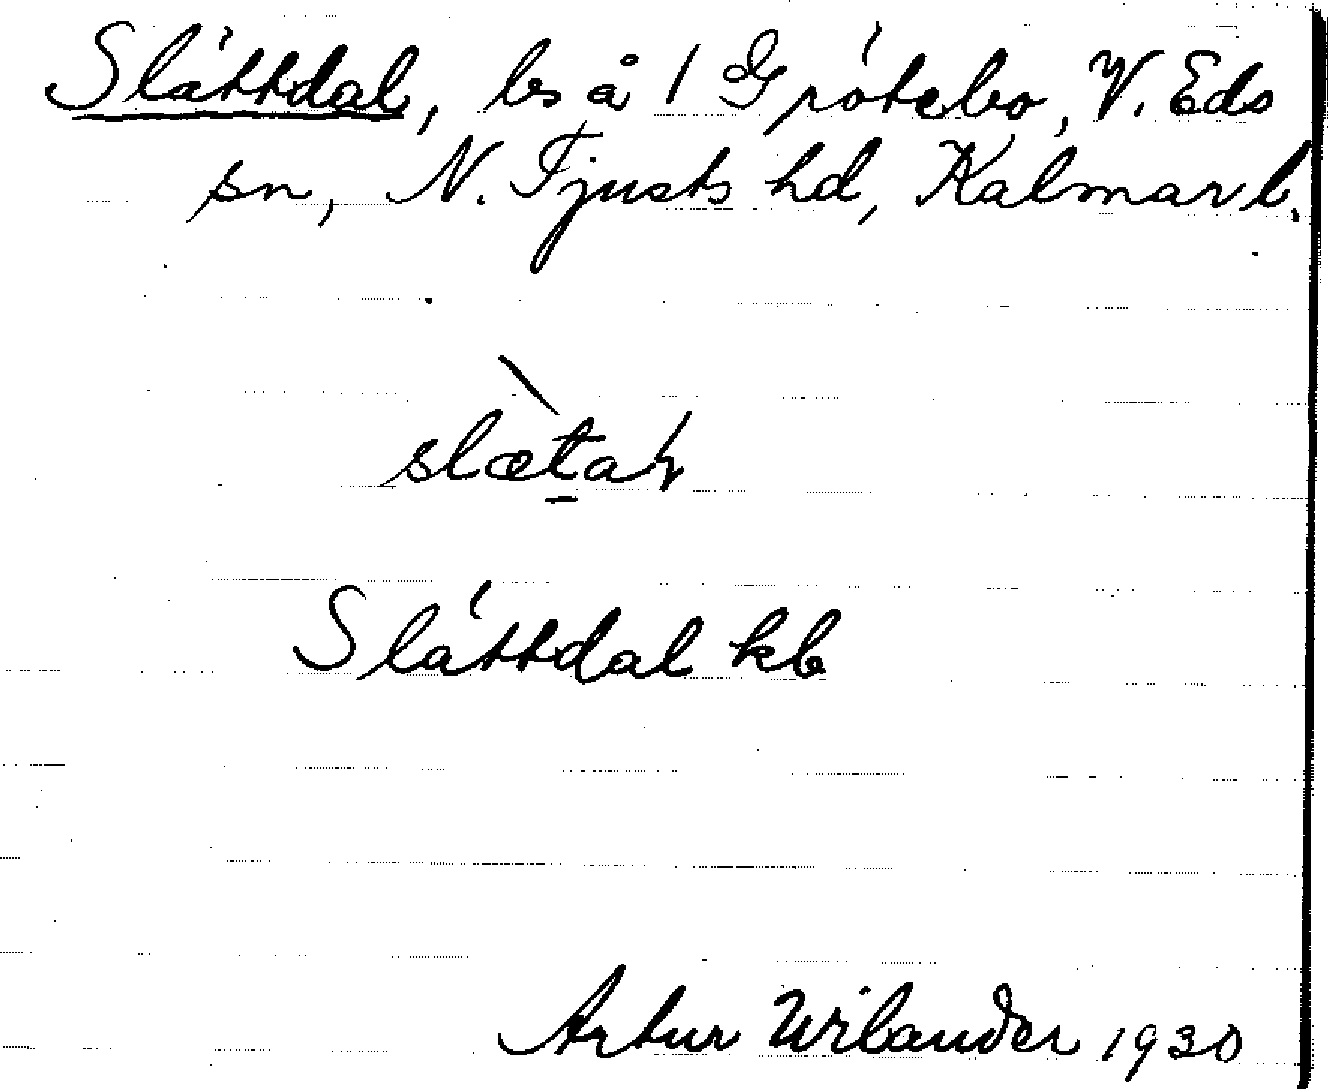 Slättdal, ls å 1 Grötebo, V. Eds
sn, N. Tjusts hd, Kalmar l.
slætaɽ
Slättdal kb
Artur Wilander 1930